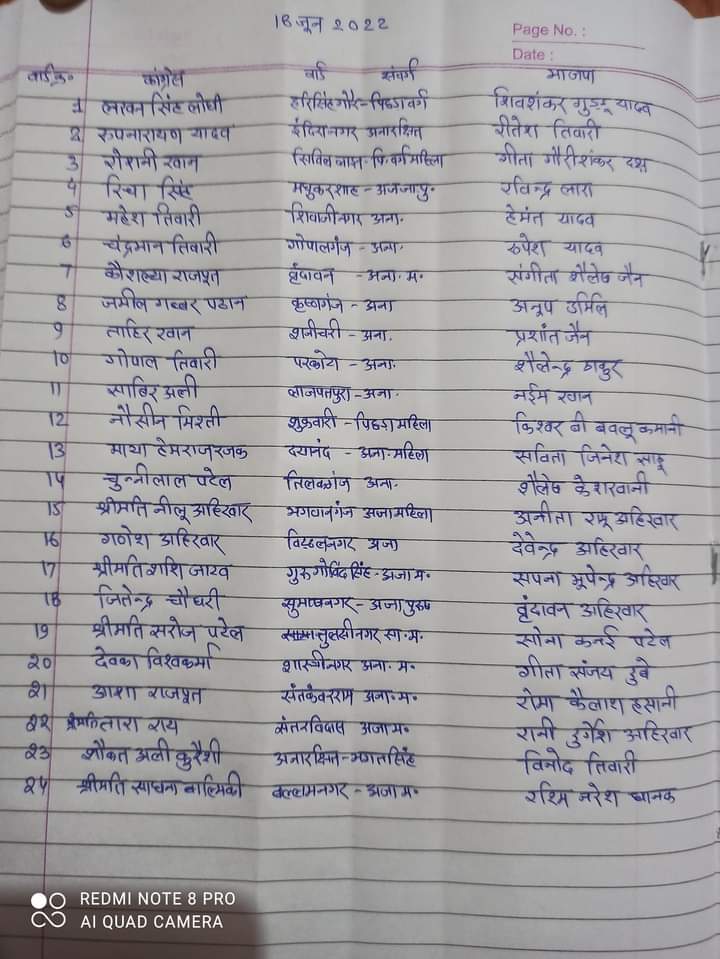 18 जून 2022
Page No. :
Date :
वार्ड क्र० कांग्रेस वार्ड संवर्ग भाजपा
1 लखन सिंह लोधी हरिसिंह गौर - पिछडा वर्ग शिवशंकर गुड्डू यादव
2 रुपनारायण यादव इंदिरानगर अनारक्षित रीतेश तिवारी
3 रोशनी खान सिविल लाइन - पि. वर्ग महिला गीता गौरीशंकर
4 रिचा सिंह मधुकरशाह - अजजापु. रविन्द्र लारा
5 महेश तिवारी शिवाजीनगर अना. हेमंत यादव
6 चंद्रभान तिवारी गोपालगंज - अना. रुपेश यादव
7 कौशल्या राजपूत वृंदावन - अना. म. संगीता शैलेष जैन
8 जमील गब्बर पठान कृष्णगंज - अना अनूप उर्मिल
9 ताहिर खान शनीचरी - अना. प्रशांत जैन
10 गोपाल तिवारी परकोटा - अना. शैलेन्द्र ठाकुर
11 साबिर अली लाजपतपुरा - अना. नईम खान
12 नौसीन मिस्ती शुक्रवारी - पिछडा महिला किश्वर बी बबलू कमानी
13 माया हेमराज रजक दयानंद - अना. महिला सविता जिनेश साहू
14 चुन्नीलाल पटेल तिलकगंज अना. शैलेष केशरवानी
15 श्रीमति नीलू अहिरवार भगवानगंज अजा महिला अनीता रामू अहिरवार
16 गणेश अहिरवार विठ्ठलनगर अजा देवेन्द्र अहिरवार
17 श्रीमति शशि जाटव गुरुगोविंद सिंह - अजा म. सपना भूपेन्द्र अहिरवार
18 जितेन्द्र चौधरी सुभाषनगर - अजा पुरुष वृंदावन अहिरवार
19 श्रीमति सरोज पटेल तुलसीनगर सा. म. सोना कनई पटेल
20 देवका विश्वकर्मा शास्त्रीनगर अना. म. गीता संजय दुबे
21 आशा राजपूत संतकंवरराम अना. म. रोमा कैलाश हसानी
22 श्रीमति तारा राय संतरविदास अजा म. रानी दुर्गेश अहिरवार
23 शौकत अली कुरैशी अनारक्षित - भगतसिंह विनोद तिवारी
24 श्रीमति साधना बाल्मिकी बल्लभनगर - अजा म. रश्मि नरेश धानक
REDMI NOTE 8 PRO
AI QUAD CAMERA